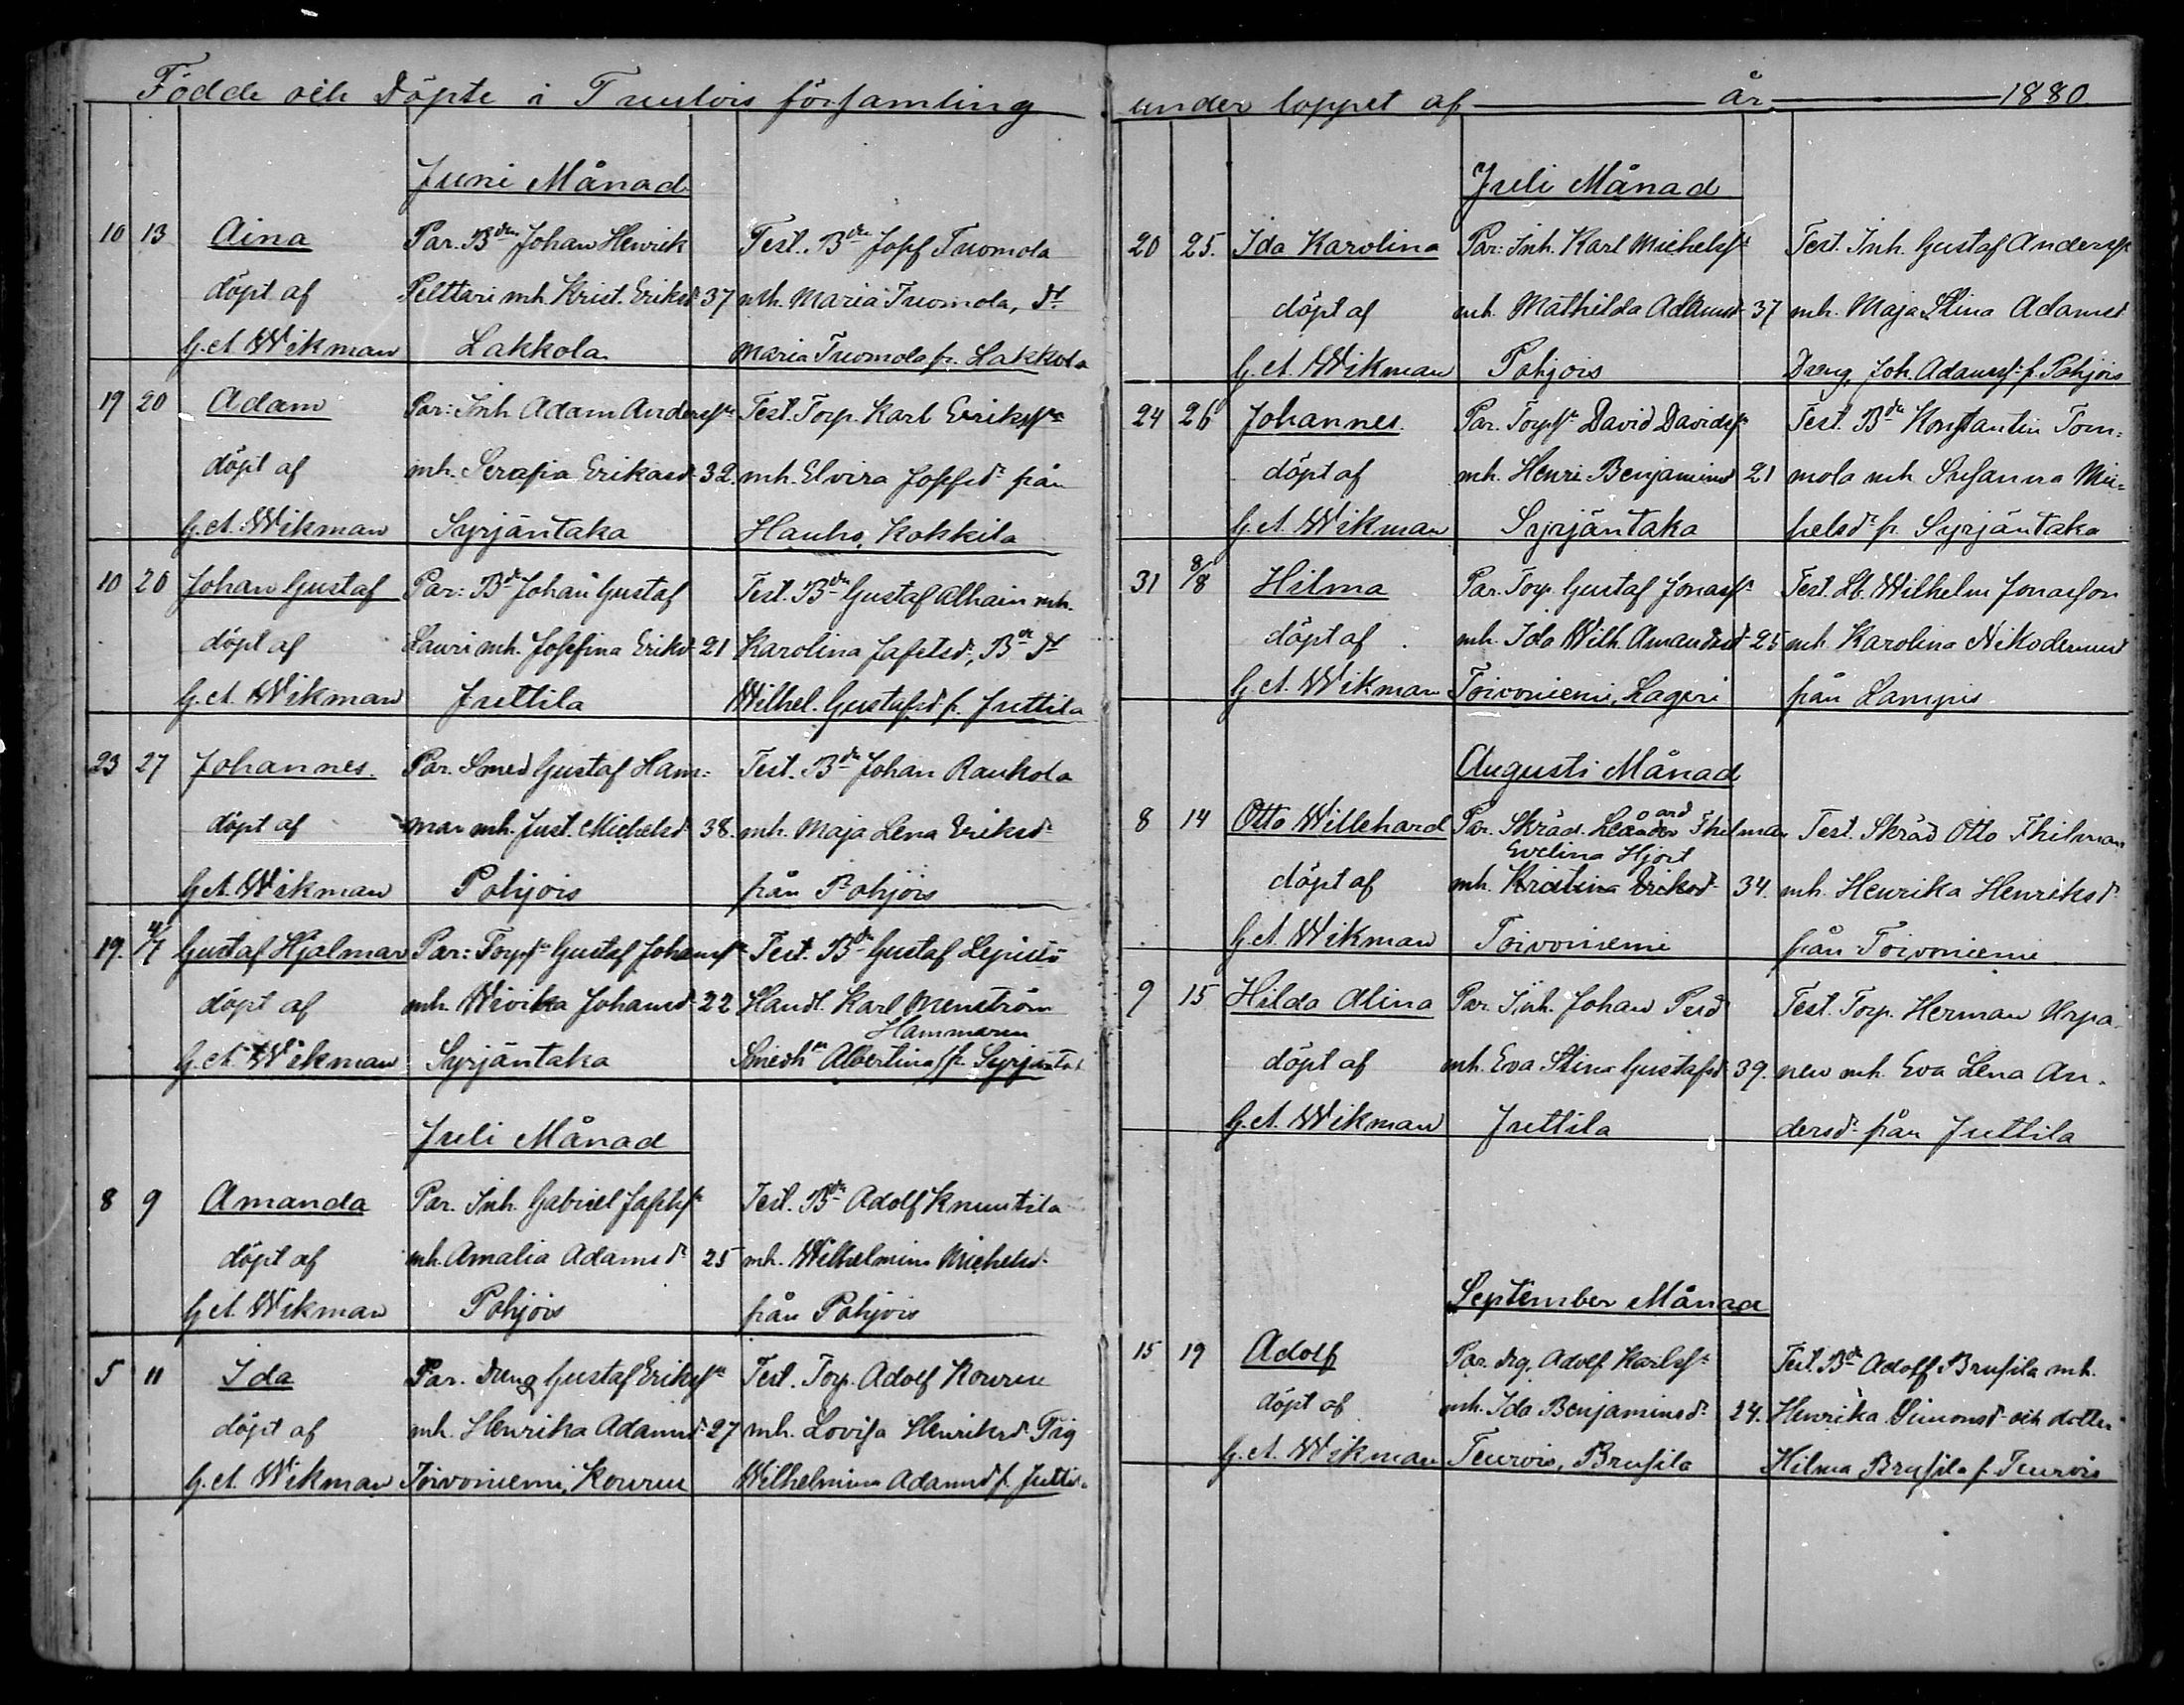 Födde och Döpte i Tuulois församling
Juni Månad
10 13 Aina Par. Bden Johan Henrik Test. Bden Josef Tuomola
döpt af Pelttari mh. Krist. Eriksdr 37 mh. Maria Tuomola, dt
G. A. Wikman Lakkola Maria Tuomola fr. Lakkola
19 20 Adam Par: Inh. Adam Anderssn Test. Torp. Karl Erikssn
döpt af mh. Serafia Erikasdr 32. mh. Elvira Josefsdr från
G. A. Wikman Syrjäntaka Hauho, Kokkila
10 20 Johan Gustaf Par: Bdn Johan Gustaf Test. Bdn Gustaf Alhain mh.
döpt af Lauri mh. Josefina Eriksd 21 Karolina Jafetsdr, Bde dt
G. A. Wikman Juttila Wilhel. Gustafsdr f. Juttila
23 27 Johannes. Par. Smed Gustaf Ham= Test. Bdn Johan Raukola
döpt af mar mh. Just. Michelsdr 38. mh. Maja Lena Eriksdr
G. A. Wikman Pohjois från Pohjois
19. 4/7 Gustaf Hjalmar Par: Torpsn Gustaf Johanssn Test. Bdn Gustaf Lepistö
döpt af mh. Wivika Johansd 22 Handl. Karl Menström
Hammaren
G. A. Wikman Syrjäntaka Smedhn Albertina fr. Syrjäntak
Juli Månad
8 9 Amanda Par. Inh. Gabriel Jafetssn Test. Bdn Adolf Knuutila
döpt af mh. Amalia Adamsdr 25 mh. Wilhelmina Michelsdr
G. A. Wikman Pohjois från Pohjois
5 11 Ida Par. Dreng Gustaf Erikssn Test. Torp. Adolf Kouru
döpt af mh. Henrika Adamsdr 27 mh. Lovisa Henriksdr Pig
G. A. Wikman Toivoniemi, Kouru Wilhelmina Adamsd f. Juttil.
under loppet af år 1880
Juli Månad
20 25. Ida Karolina Par: Inh. Karl Michelssn Test. Inh. Gustaf Anderssn
döpt af mh. Mathilda Adamsd 37 mh. Maja Stina Adamsd
G. A. Wikman Pohjois Dräng, Joh. Adamss: f. Pohjois
24 26 Johannes. Par. Torpsn David Davidssn Test. Bdn Konstantin Tom=
döpt af mh. Henri Benjaminsd 21 mola mh Susanna Mi=
G. A. Wikman Syrjäntaka helsdr fr. Syrjäntaka
31 8/8 Hilma Par. Torp. Gustaf Jonassn Test. Wilhelm Jonasson
döpt af mh. Ida Wilh. Amandasd 25 mh Karolina Nikodemusd
G. A. Wikman Toivoniemi, Lageri från Lampis
Augusti Månad
8 14 Otto Willehard Par. Skräd. Leander Thilman Test. Skräd Otto Thilman
ard
Evelina Hjort
döpt af mh. Kristina Eriksdr 34. mh. Henrika Henriksdr
G. A. Wikman Toivoniemi från Toivoniemi
9 15 Hilda Alina Par. Inh. Johan Test. Torp. Herman Arpa
döpt af mh. Eva Stina Gustafsd 39. nen mh. Eva Lena An.
G. A. Wikman Juttila dersdr från Juttila
September Månad
15 19 Adolf Par. drg. Adolf Karlssn Test. Bdn Adolf Brusila mh.
döpt af mh. Ida Benjaminsdr 24. Henrika Simonsdr och dotter
G. A. Wikman Teurois, Brusila Hilma Brusila f. Teurois